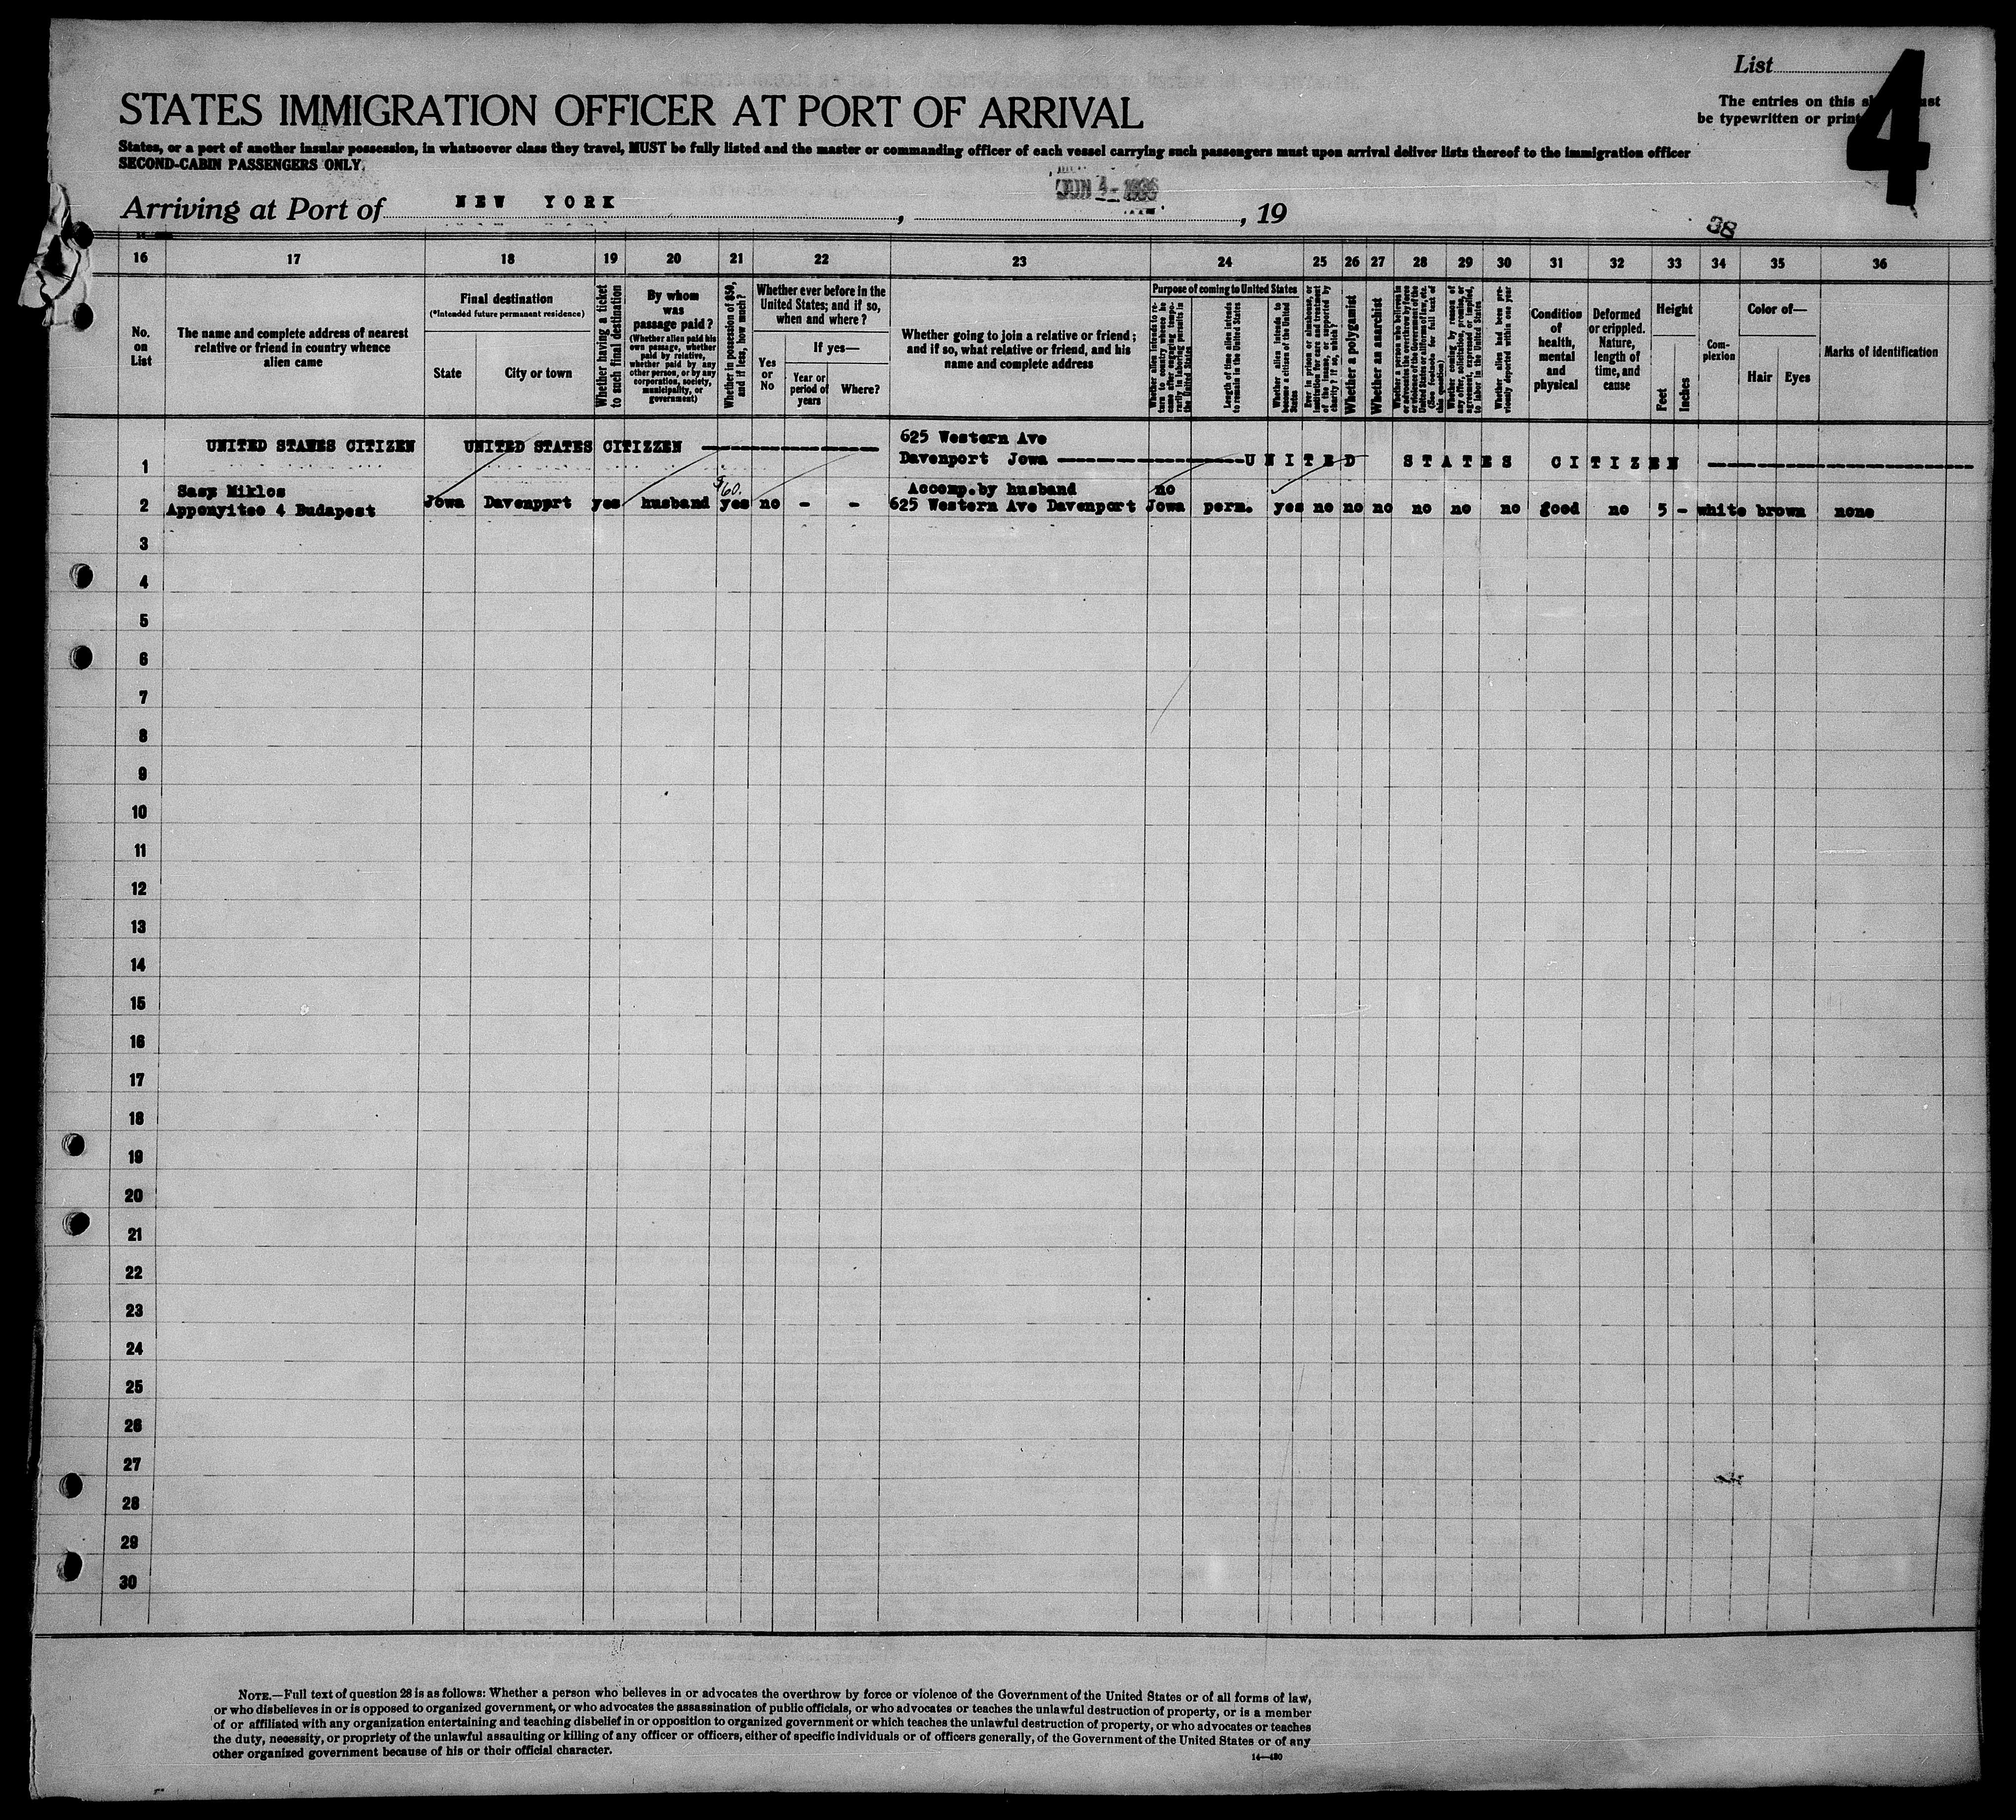 List
4
STATES IMMIGRATION OFFICER AT PORT OF ARRIVAL
The entries on this
be typewritten or
States, or a port of another insular possession, in whatsoever class they travel, MUST be fully listed and the master or commanding officer of each vessel carrying such passengers must upon arrival deliver lists thereof to the immigration officer
SECOND-CABIN PASSENGERS ONLY.
Arriving at Port of NEW YORK, JUN 4-, 19
38
16 17 18 19 20 21 22 23 24 25 26 27 28 29 30 31 32 33 34 35 36
No. on List
The name and complete address of nearest relative or friend in country whence alien came
Final destination
(*Intended future permanent residence)
State
City or town
Whether having a ticket to such final destination
By whom was passage paid?
(Whether alien paid his own passage, whether paid by relative, whether paid by any other person, or by any corporation, society, municipality, or government)
Whether in possession of $50, and if less, how much?
Whether ever before in the United States; and if so, when and where?
Yes or No
If yes—
Year or period of years
Where?
Whether going to join a relative or friend; and if so, what relative or friend, and his name and complete address
Purpose of coming to United States
Whether alien intends to return to country whence he came after engaging temporarily in laboring pursuits in the United States
Length of time alien intends to remain in the United States
Whether alien intends to become a citizen of the United States
Ever in prison or almshouse, or institution for care and treatment of the insane, or supported by charity? If so, which?
Whether a polygamist
Whether an anarchist
Whether a person who believes in or advocates the overthrow by force or violence of the Government of the United States or all forms of law, etc. (See footnote for full text of this question)
Whether coming by reason of any offer, solicitation, promise, or agreement, expressed or implied, to labor in the United States
Whether alien had been previously deported within one year
Condition of health, mental and physical
Deformed or crippled. Nature, length of time, and cause
Height
Feet
Inches
Com-plexion
Color of—
Hair
Eyes
Marks of identification
1 UNITED STANES CITIZEN UNITED STATES CITIZZEN 625 Western Ave
Davenport Jowa UNITED STATES CITIZEN
2 Sasz Miklos
Appenyitee 4 Budapest Jowa Davenpprt yes husband $60. yes no - - Accomp.by husband
625 Western Ave Davenport Jowa no perm. yes no no no no no no good no 5 - white brown none
3
4
5
6
7
8
9
10
11
12
13
14
15
16
17
18
19
20
21
22
23
24
25
26
27
28
29
30
NOTE.—Full text of question 28 is as follows: Whether a person who believes in or advocates the overthrow by force or violence of the Government of the United States or of all forms of law,
or who disbelieves in or is opposed to organized government, or who advocates the assassination of public officials, or who advocates or teaches the unlawful destruction of property, or is a member
of or affiliated with any organization entertaining and teaching disbelief in or opposition to organized government or which teaches the unlawful destruction of property, or who advocates or teaches
the duty, necessity, or propriety of the unlawful assaulting or killing of any officer or officers, either of specific individuals or of officers generally, of the Government of the United States or of any
other organized government because of his or their official character.
14—430